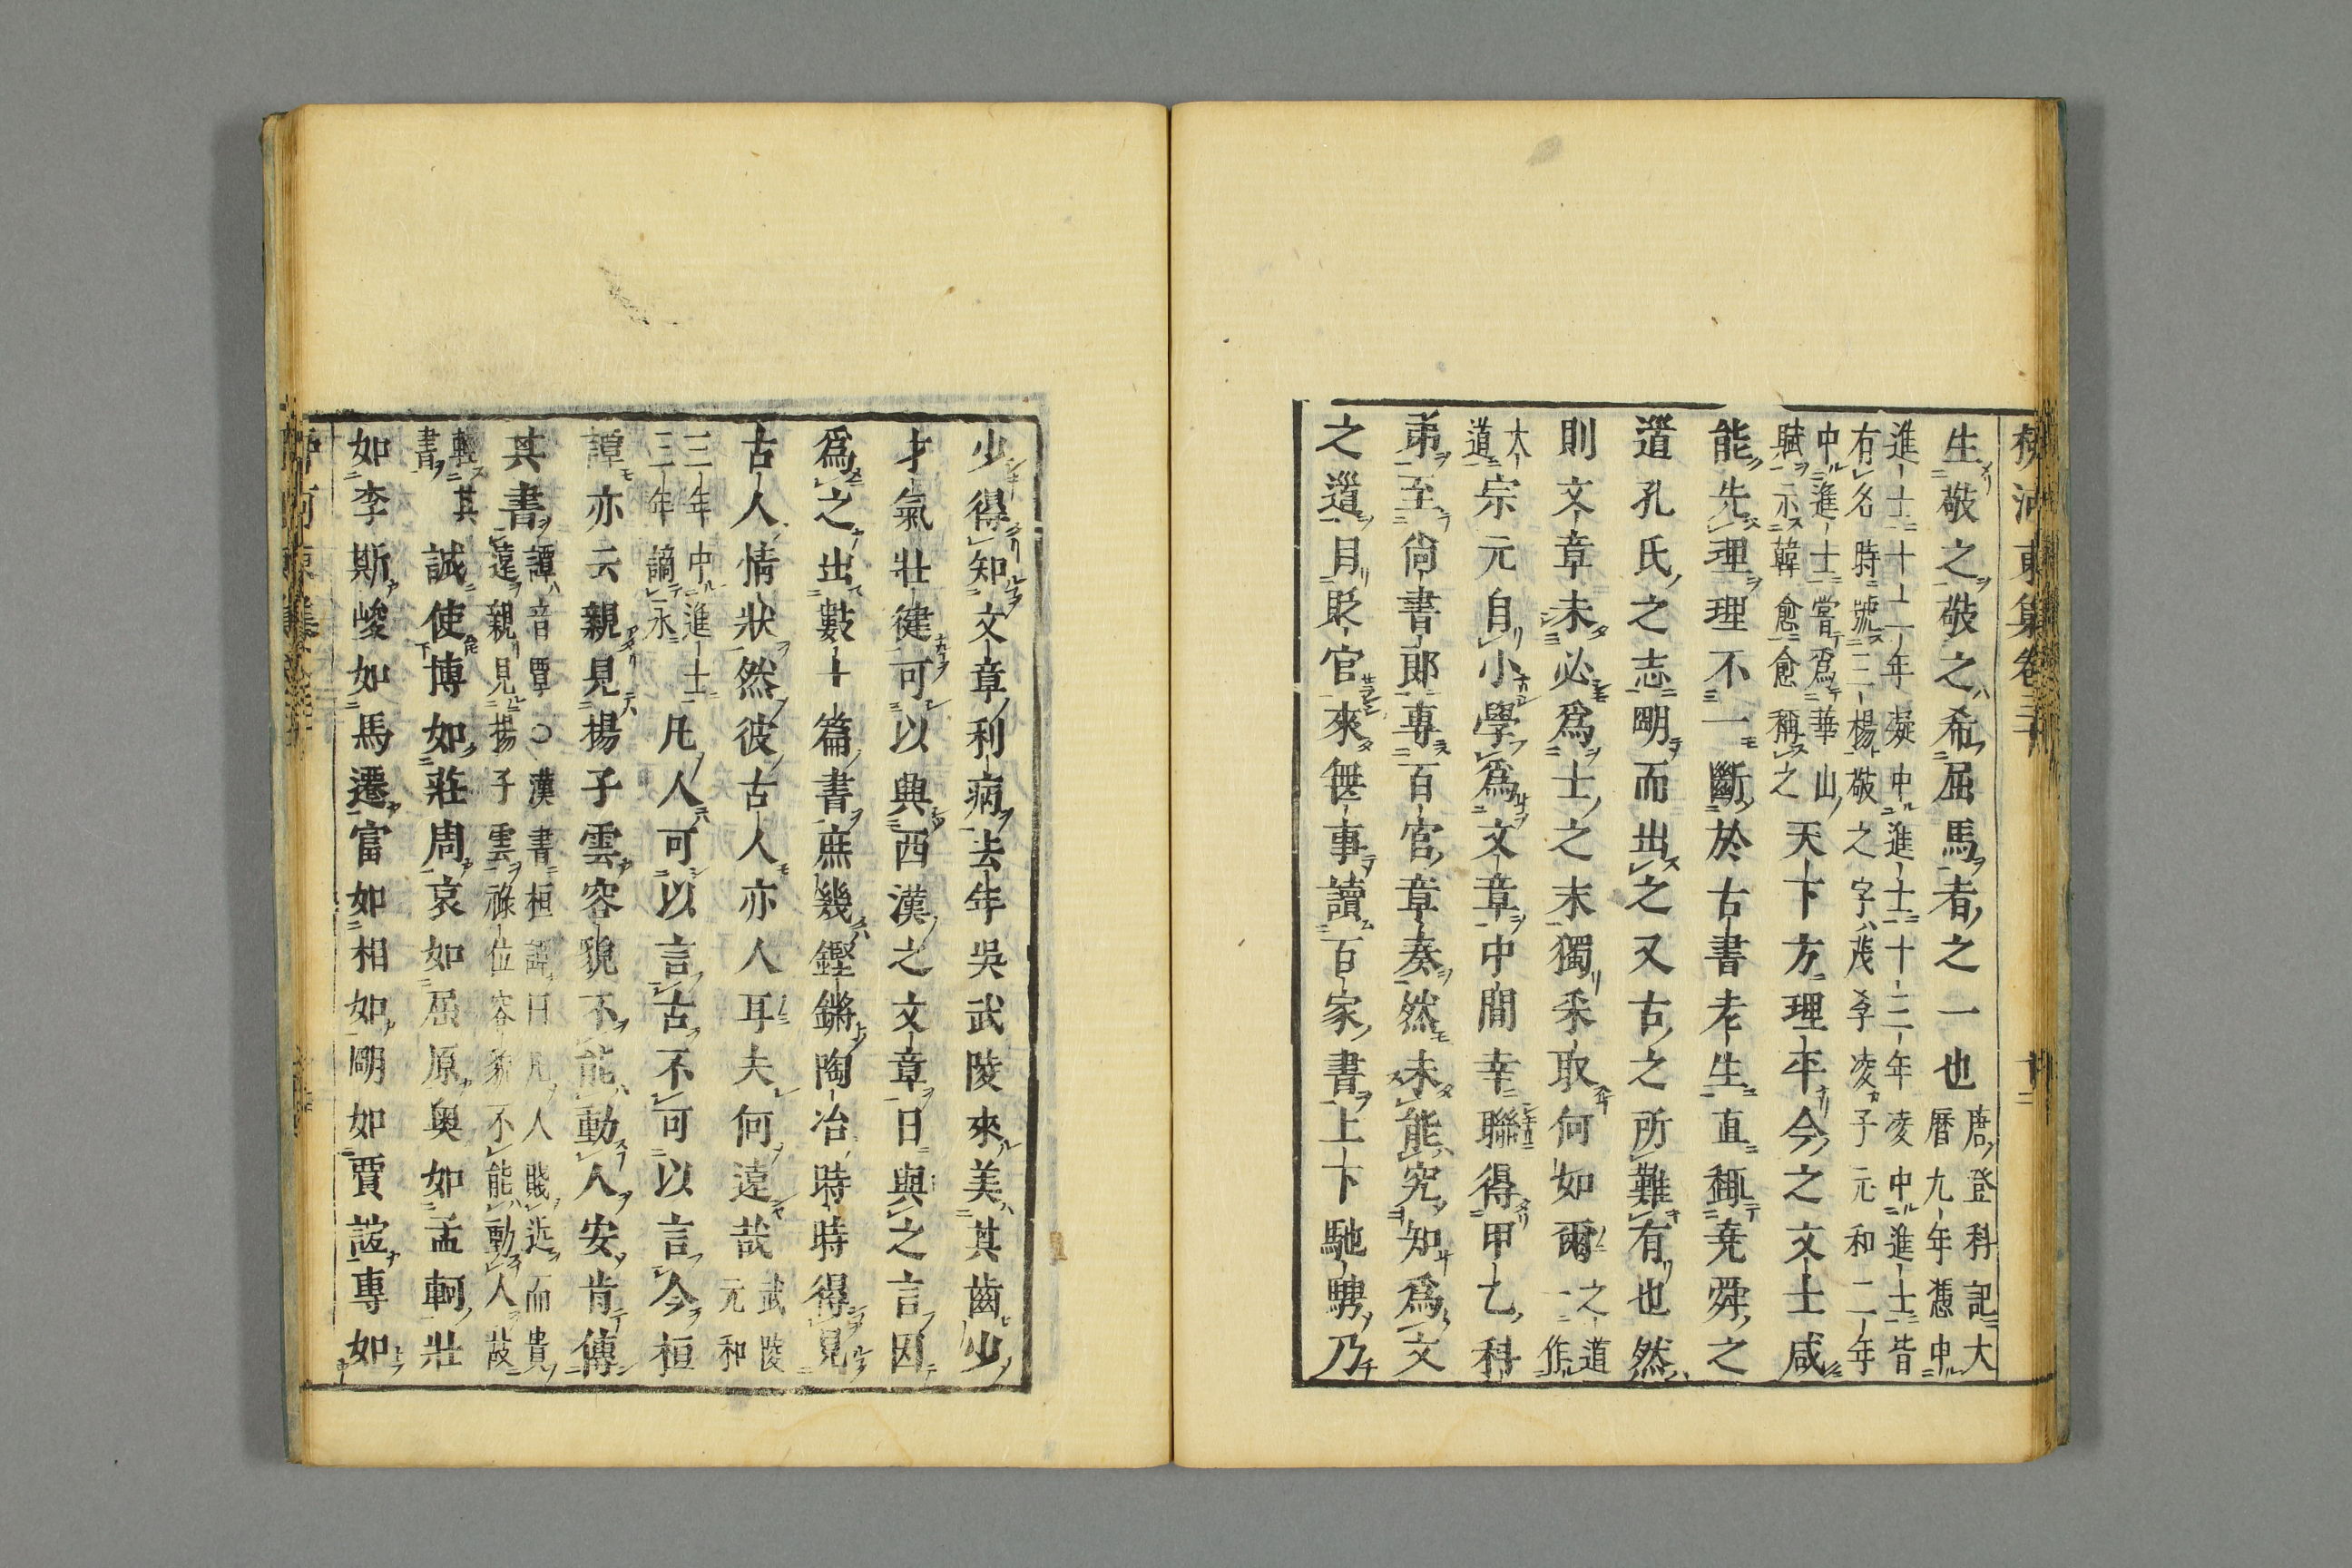 柳河東集卷三十
十二
生敬之敬之希屈馬者之一也
唐登科記大
曆九年憑中
進士十二年凝中進士十三年凌中進士皆
有名時號三楊敬之字茂孝凌子元和二年
中進士嘗爲華山
賦示韓愈愈稱之
天下方理平今之文士咸
能先理理不一斷於古書老生直趣堯舜之
道孔氏之志明而出之又古之所難有也然
則文章未必爲士之末獨采取何如爾
之道
一作
大
道
宗元自小學爲文章中間幸聯得甲乙科
第至尚書郎專百官章奏然未能究知爲文
之道自貶官來無事讀百家書上下馳騁乃
少得知文章利病去年吳武陵來美其齒少
才氣壯健可以興西漢之文章日與之言因
爲之出數十篇書庶幾鏗鏘陶冶時時得見
古人情狀然彼古人亦人耳夫何遠哉
武陵
元和
三年中進士
三年謫永
凡人可以言古不可以言今桓
譚亦云親見揚子雲容貌不能動人安肯傳
其書
譚音覃○漢書桓譚曰凡人賤近而貴
遠親見揚子雲祿位容貌不能動人故
輕其
書
誠使博如莊周哀如屈原奥如孟軻壯
如李斯峻如馬遷富如相如明如賈誼專如